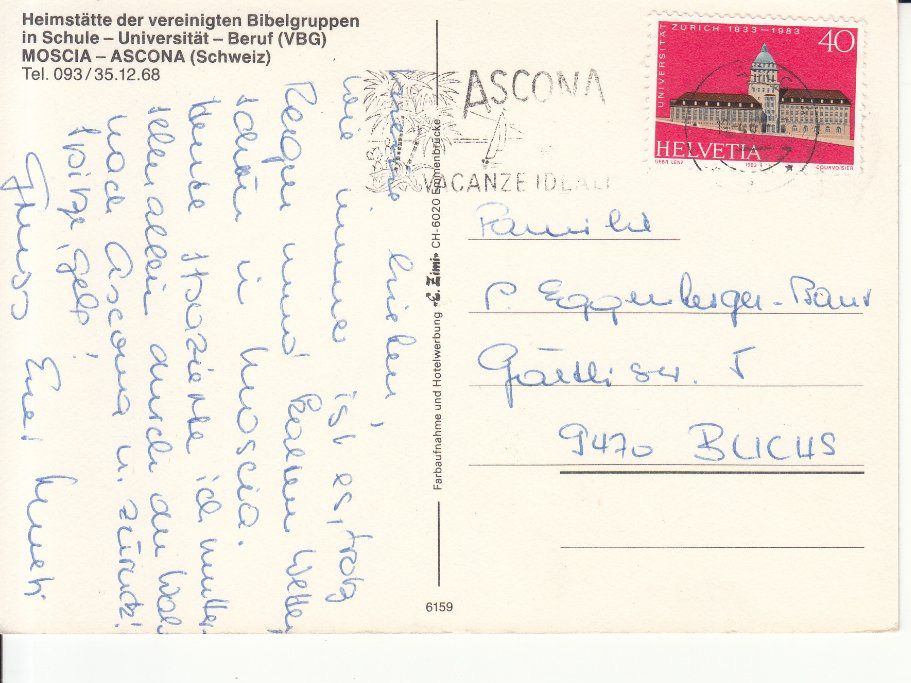 Heimstätte der vereinigten Bibelgruppen
in Schule – Universität – Beruf (VBG)
MOSCIA – ASCONA (Schweiz)
Tel. 093/35.12.68
lieben,
wie immer ist es, trotz
Regen und kaltem Wetter,
schön in Moscia.
Heute spazierte ich mutter-
seelenallein durch den Wald
nach Ascona u. zurück!
Gruss Euer
Farbaufnahme und Hotelwerbung «E. Zimi» CH-6020 Emmenbrücke
6159
ASCONA
VACANZE IDEALI
UNIVERSITÄT ZÜRICH 1833–1983
40
HELVETIA
COURVOISIER
Familie
P. Eggenberger-Baur
5
9470 BUCHS